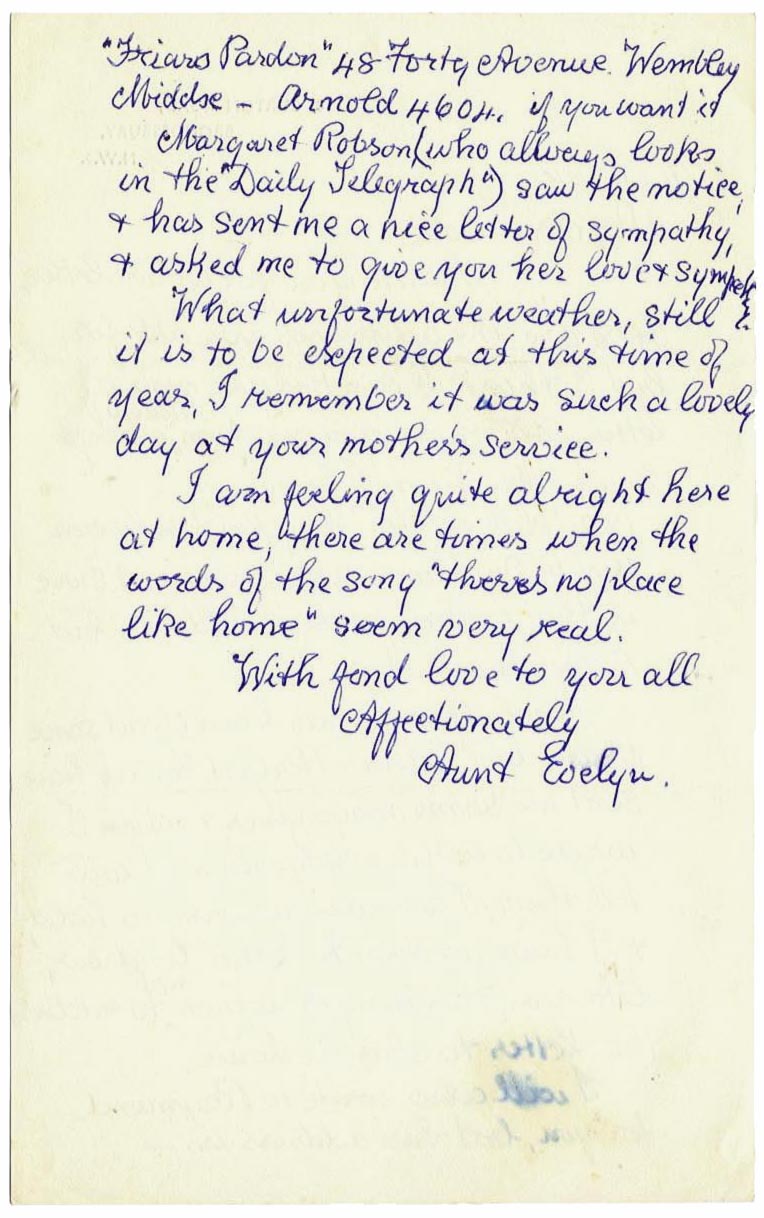 "Friars Pardon" 48 Forty Avenue. Wembley
Middse - Arnold 4604. if you want it
Margaret Robson (who allways looks
in the "Daily Telegraph") saw the notice,
& has sent me a nice letter of sympathy,
& asked me to give you her love & sympathy.
What unfortunate weather, still
it is to be expected at this time of
year, I remember it was such a lovely
day at your mother's service.
I am feeling quite alright here
at home, there are times when the
words of the song "there's no place
like home" seem very real.
With fond love to you all
Affectionately
Aunt Evelyn.